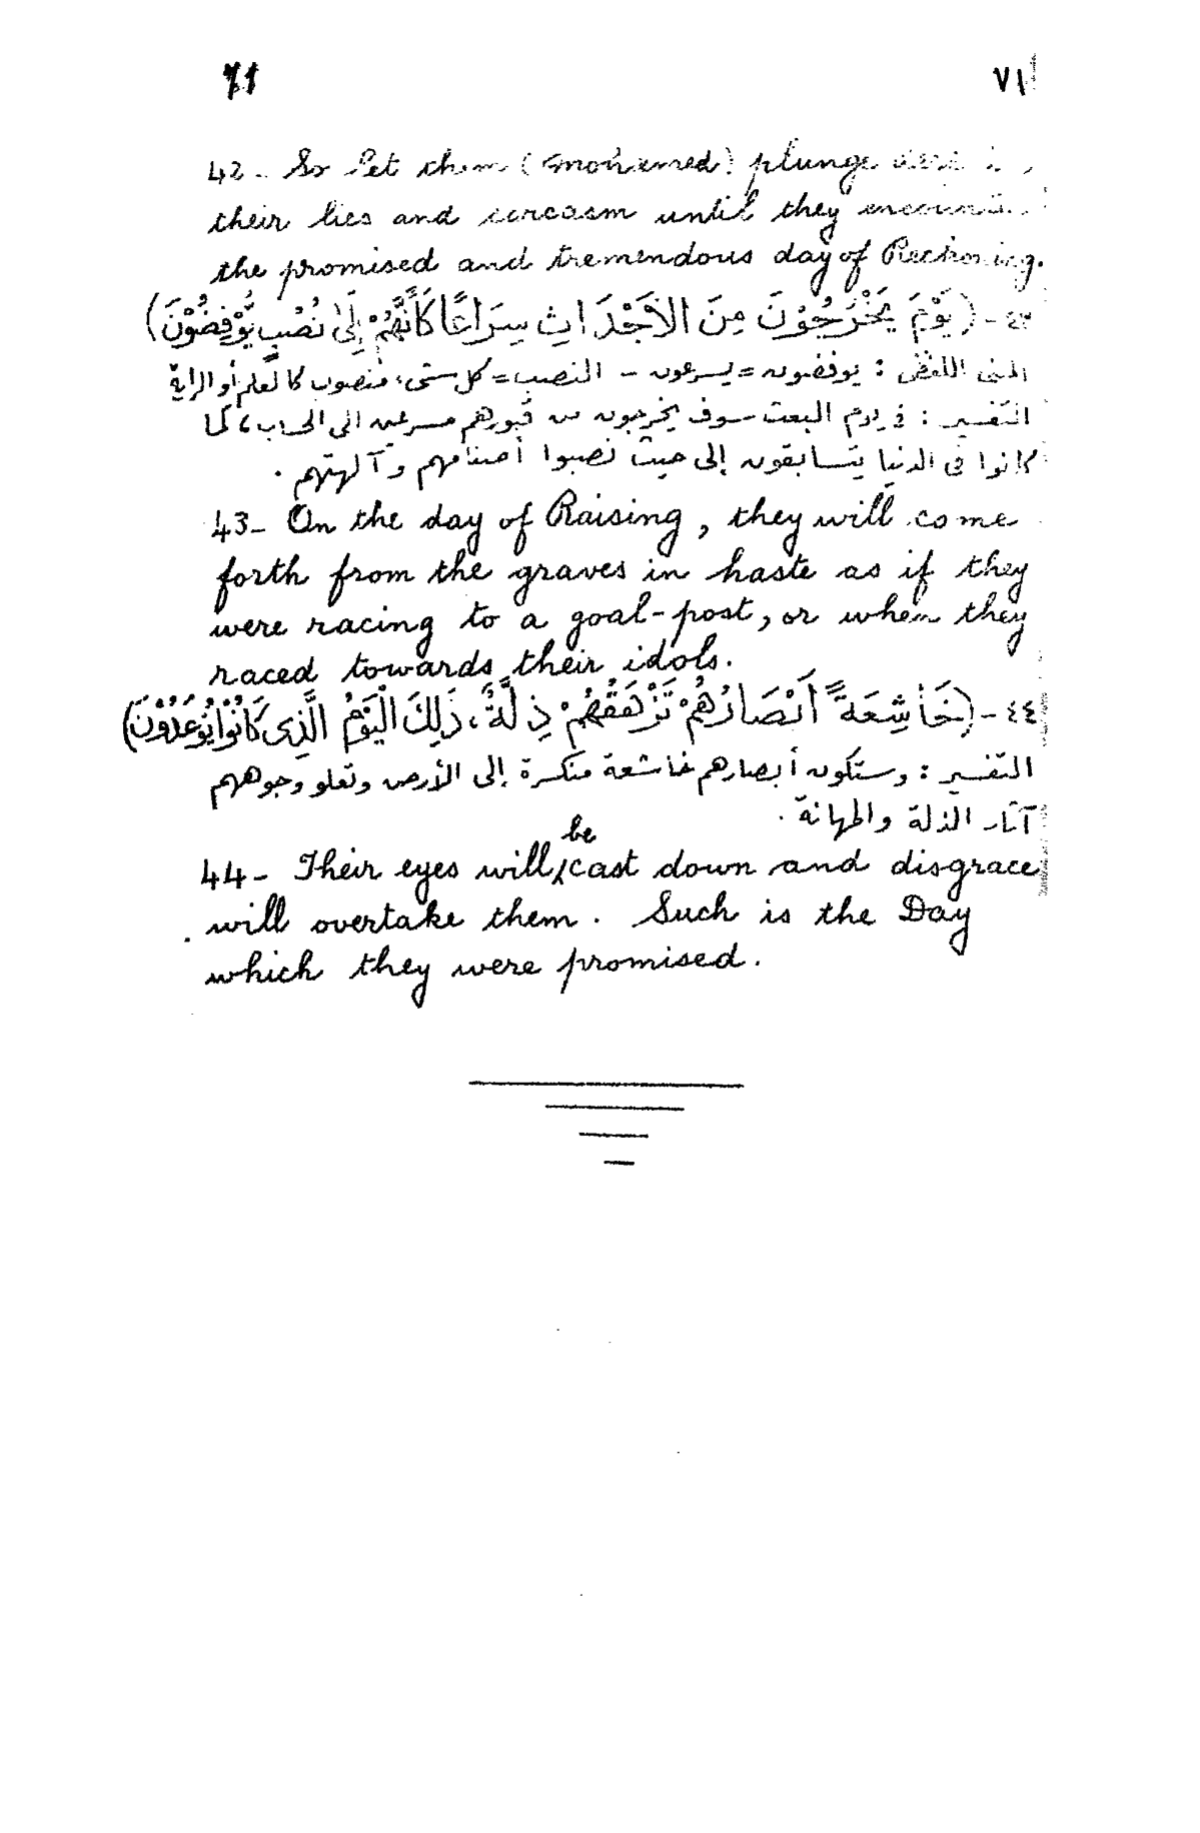 71 ٧١
42 - So let them (Mohamed) plunge
their lies and sarcasm until they
the promised and tremendous day of Reckoning.
٤٣ - (يَوْمَ يَخْرُجُوْنَ مِنَ الأَجْدَاثِ سِرَاعًا كَأَنَّهُمْ إِلَىٰ نُصُبٍ يُّوْفِضُوْنَ)
المعنى اللفظى : يوفضون = يسرعون - النصب = كل شئ منصوب كالعلم أو الراية
التفسير : فى يوم البعث سوف يخرجون من قبورهم مسرعين الى الحساب، كما
كانوا فى الدنيا يتسابقون إلى حيث نصبوا أصنامهم وآلهتهم .
43- On the day of Raising, they will come
forth from the graves in haste as if they
were racing to a goal-post, or when they
raced towards their idols.
٤٤ - (خَاشِعَةً أَبْصَارُهُمْ تَرْهَقُهُمْ ذِلَّةٌ، ذَلِكَ الْيَوْمُ الَّذِى كَانُوْا يُوْعَدُوْنَ)
التفسير : وستكون أبصارهم خاشعة منكسرة إلى الأرض وتعلو وجوههم
آثار الذلة والمهانة .
44- Their eyes will be cast down and disgrace
will overtake them. Such is the Day
which they were promised.